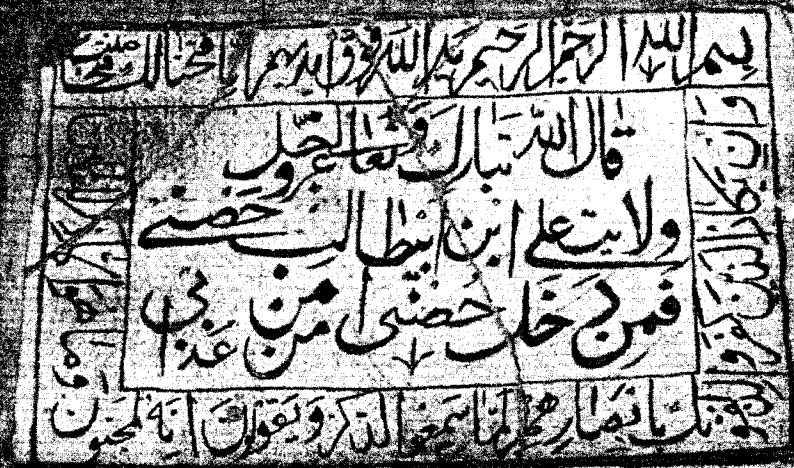 بسم الله الرحمن الرحيم يد الله فوق ايديهم انا فتحنا لك فتحا مبينا
قال الله تبارك وتعالى عز وجل
ولايت علي ابن ابيطالب حصني
فمن دخل حصني امن من عذابي
وان يكاد الذين كفروا
ليزلقونك بابصارهم لما سمعوا الذكر ويقولون انه لمجنون